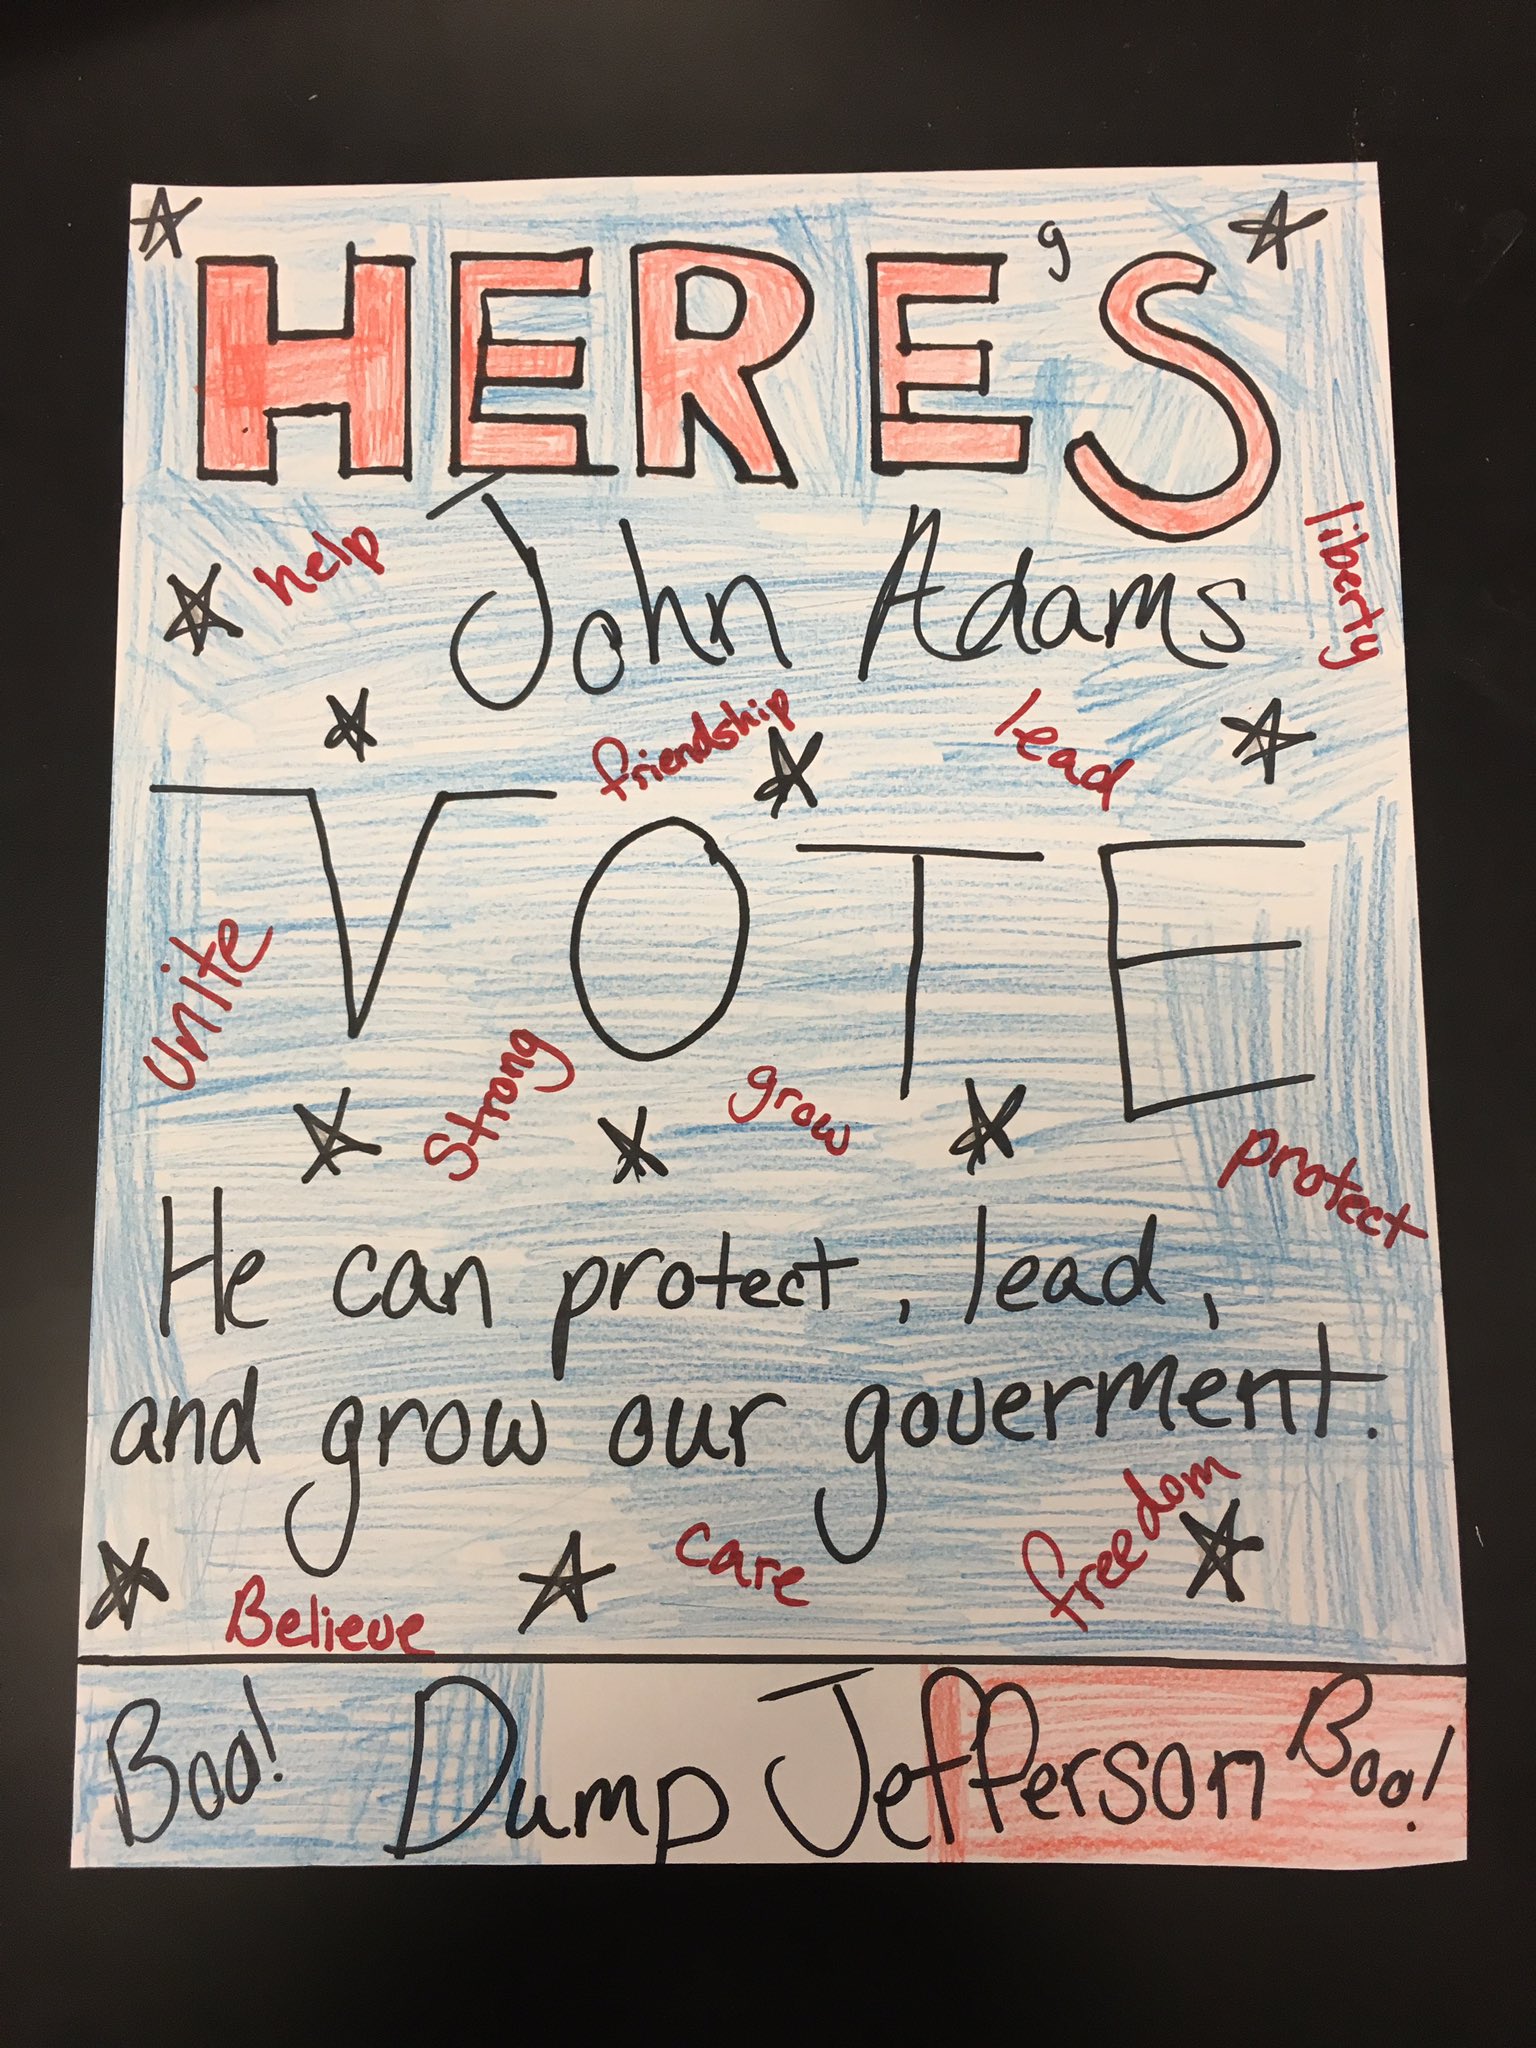 HERE'S
help
John Adams
liberty
friendship
lead
VOTE
unite
Strong
grow
protect
He can protect, lead,
and grow our goverment.
Believe
care
freedom
Boo! Dump Jefferson Boo!